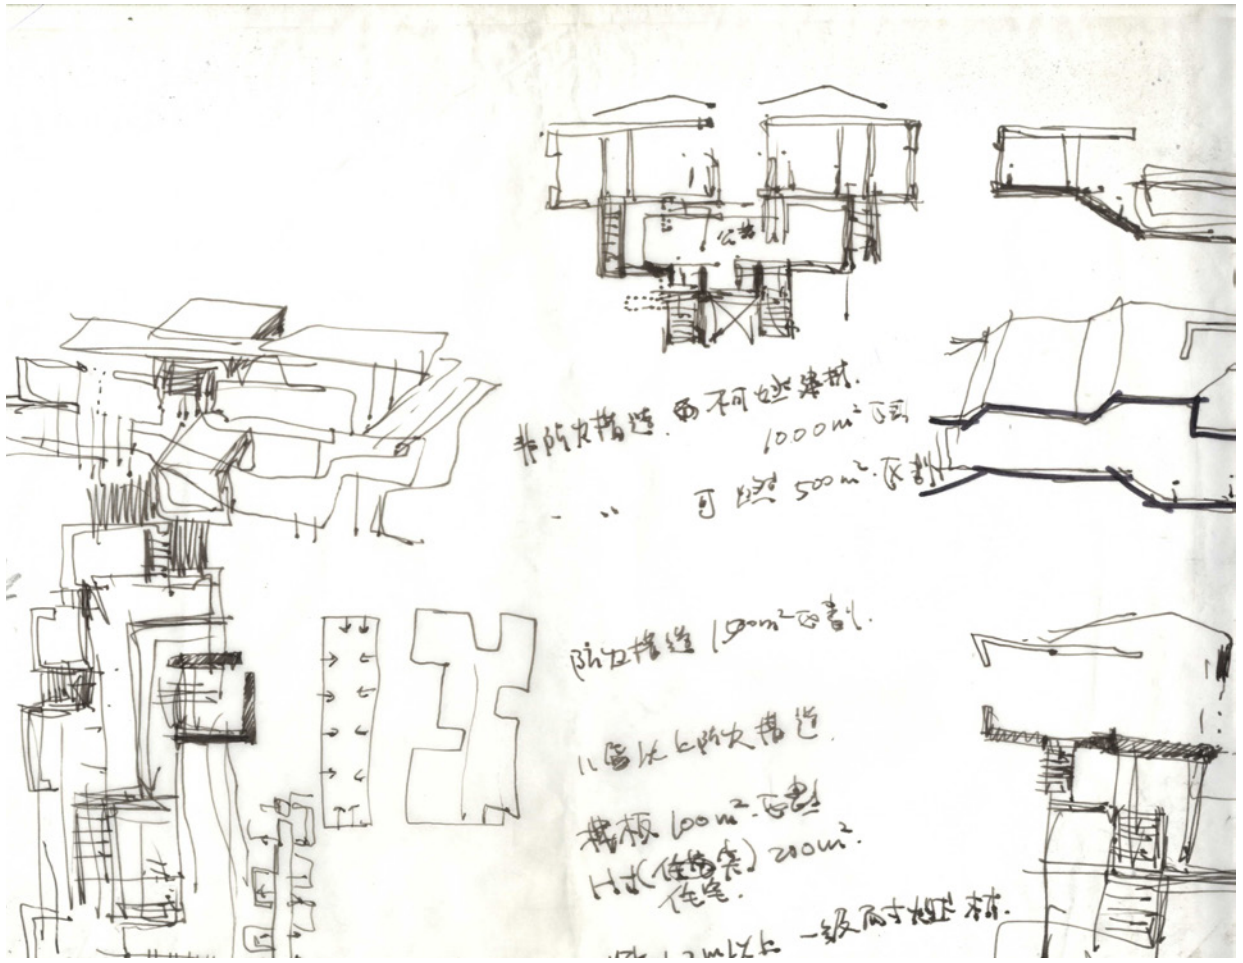 公共
非防火構造.而不可燃建材.
1000m² 区割
〃 可燃 500m².区割
防火構造 1500m² 区割.
11層以上防火構造.
樓板 100m².区劃
H2(住宿類) 200m².
住宅.
以上 一級耐燃材.